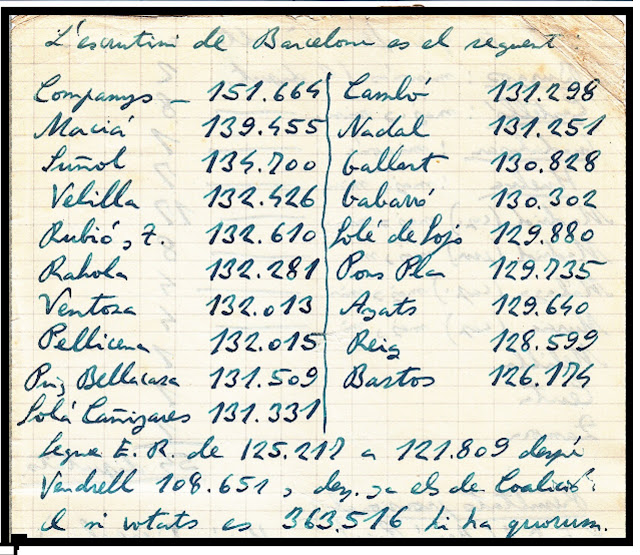 L'escrutini de Barcelona es el seguent:
Companys - 151.664
Maciá 139.455
Suñol 134.700
Velilla 132.426
Rubió, 7. 132.610
Rahola 132.281
Ventosa 132.013
Pellicena 132.015
Puig Bellacasa 131.509
Solá Cañizares 131.331
Cambó 131.298
Nadal 131.251
Gallart 130.828
Gabarró 130.302
Solé de Sojo 129.880
Pons Pla 129.735
Agats 129.640
Reig 128.599
Bastos 126.174
Segue E. R. de 125.217 a 121.809 despé
Vendrell 108.651, des. a els de Coalició.
I si votats es 363.516 hi ha quorum.